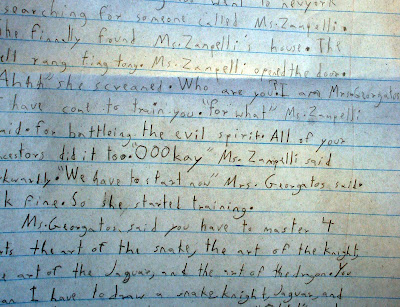 went to newyork
searching for someone called Ms. Zanpelli.
she finally found Ms. Zanpelli's house. The
ell rang ting tong. Ms. Zanpelli opened the door.
Ahhh" she screamed. Who are you? I am Mrs. Georgatos
i have come to train you. "for what" Ms. Zanpelli
aid. for battleing the evil spirit. All of your
ncestors did it too. "OOOkay" Ms. Zanpelli said
kwardly. "We have to start now" Mrs. Georgatos said.
k fine. So she started training.
Ms. Georgatos said you have to master 4
rts the art of the snake, the art of the knight,
e art of the Jaguar, and the art of the dragon. You
an I have to draw a snake, knight, Jaguar, and